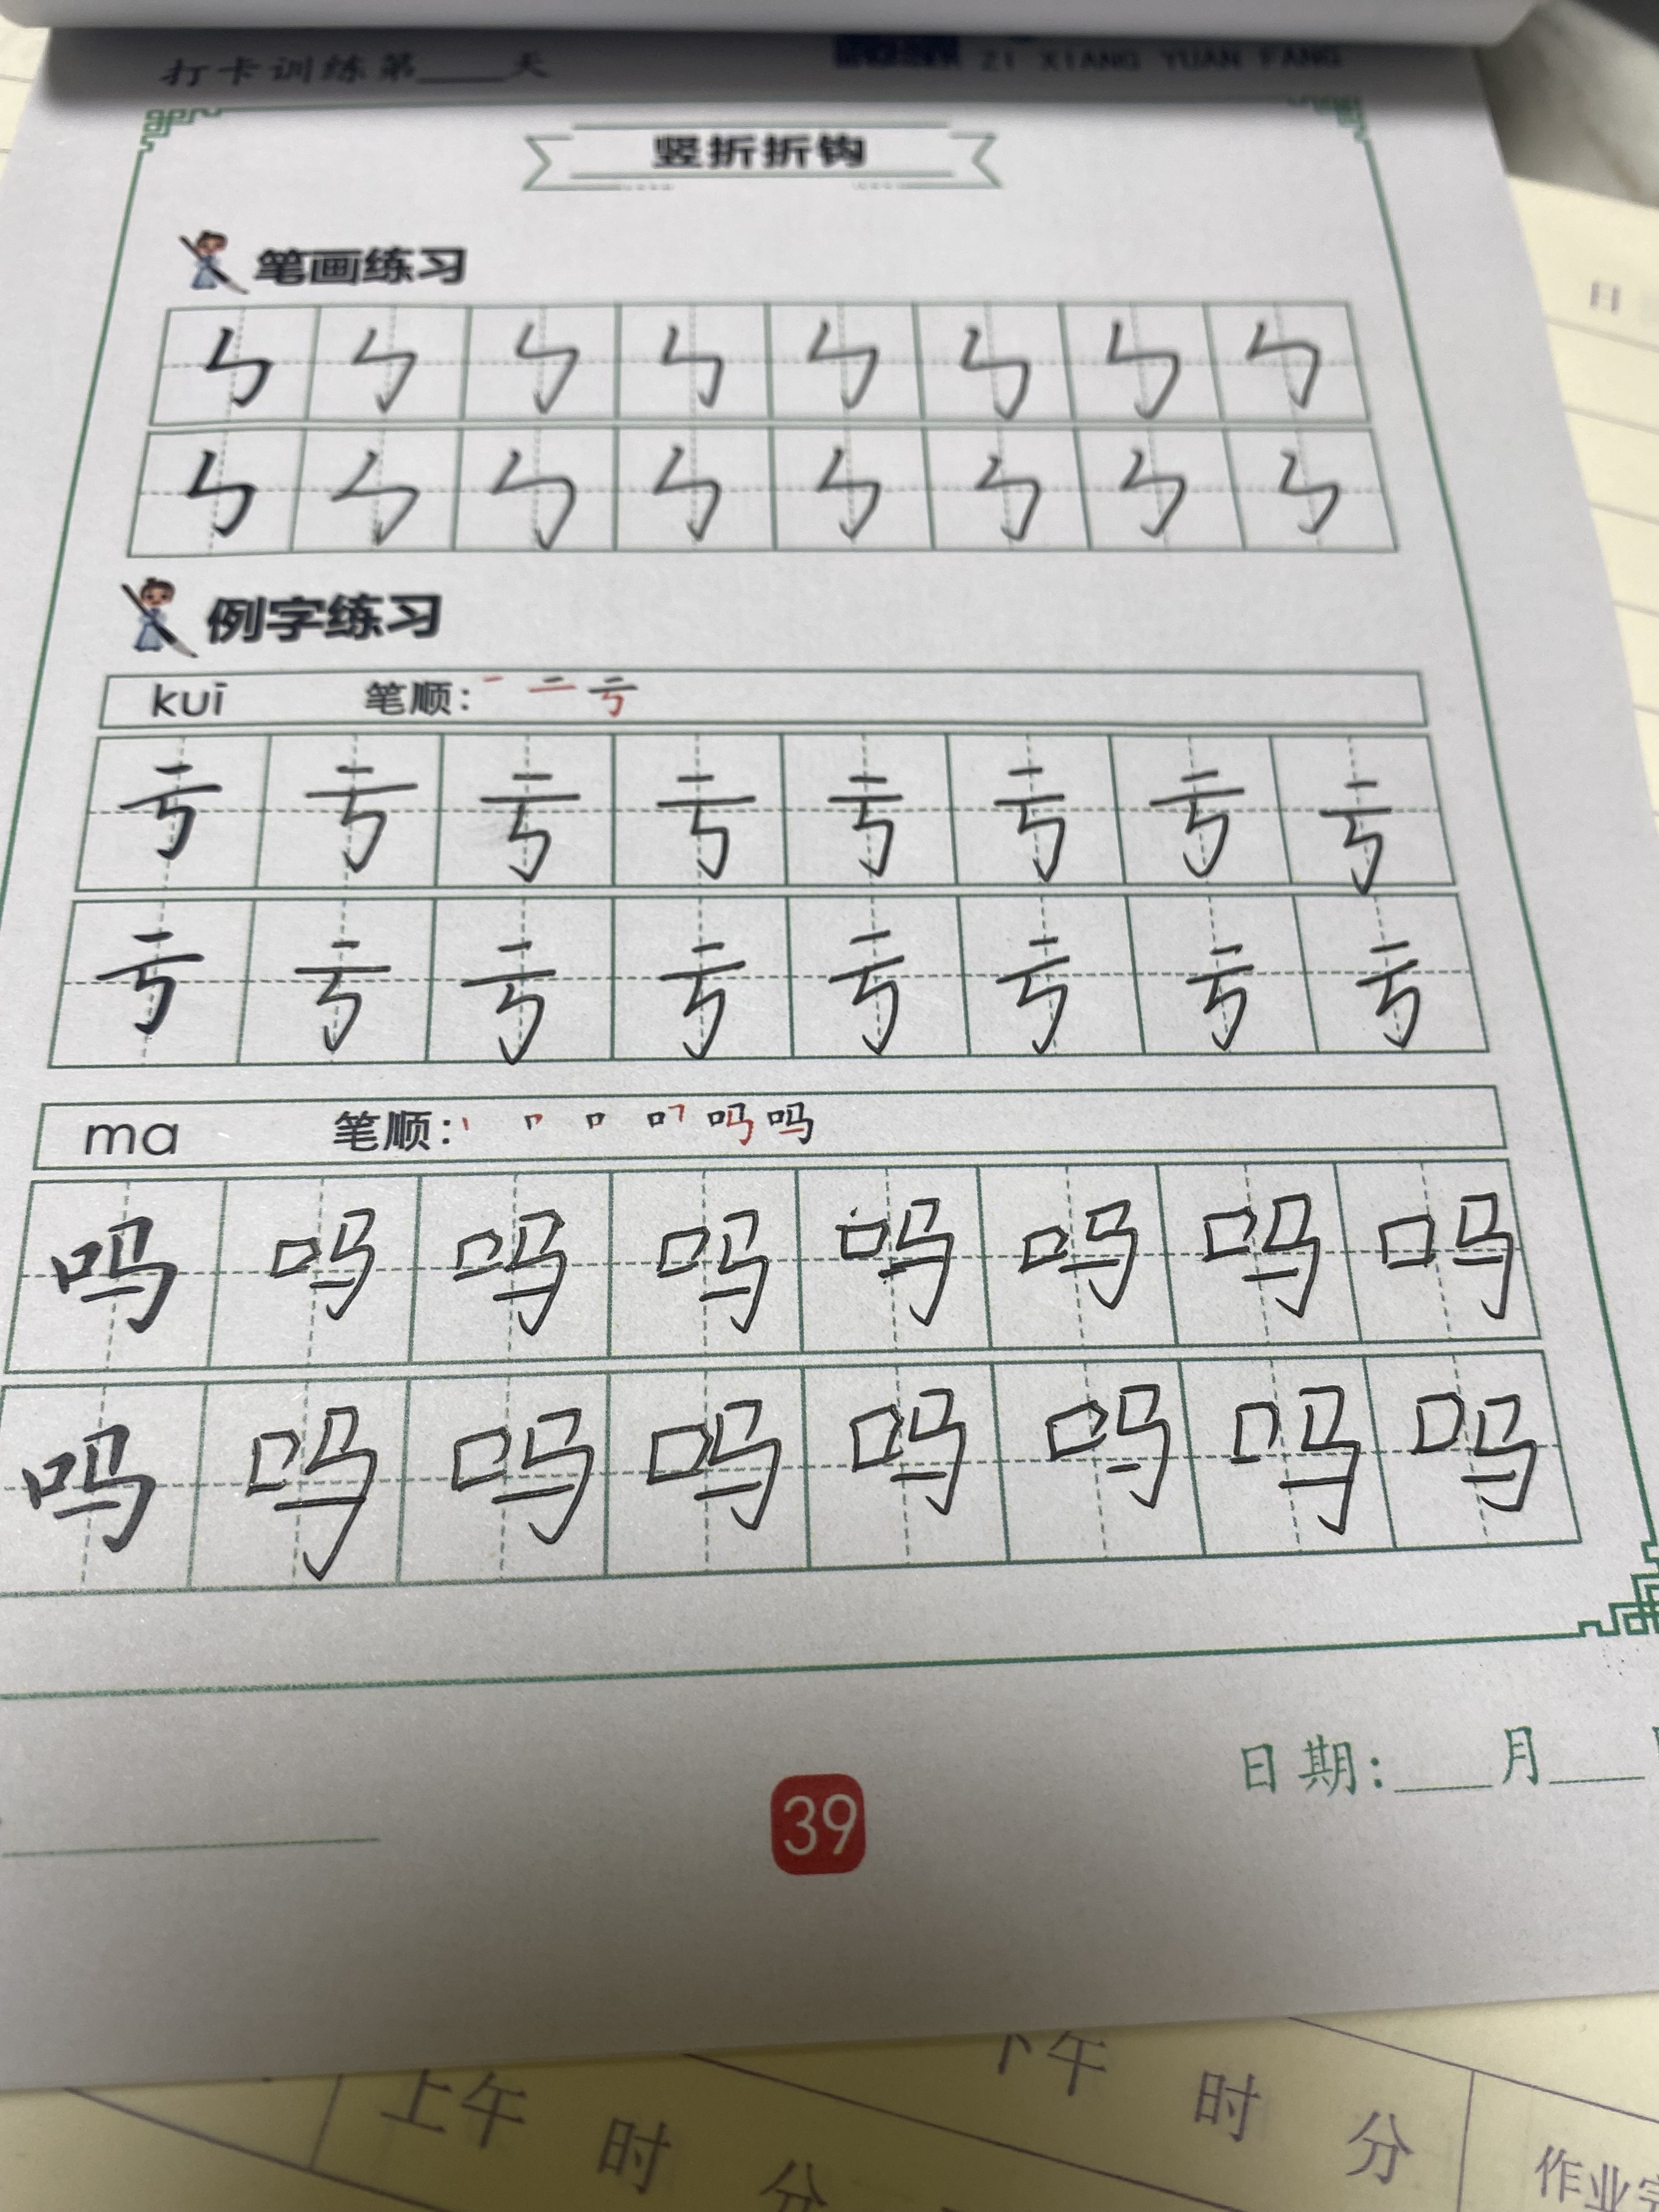 打卡训练第____天
ZI XIANG YUAN FANG
竖折折钩
笔画练习
㇉ ㇉ ㇉ ㇉ ㇉ ㇉ ㇉ ㇉
㇉ ㇉ ㇉ ㇉ ㇉ ㇉ ㇉ ㇉
例字练习
kuī 笔顺: 一 二 亏
亏 亏 亏 亏 亏 亏 亏 亏
亏 亏 亏 亏 亏 亏 亏 亏
ma 笔顺: 丨 𠃍 口 吗 吗
吗 吗 吗 吗 吗 吗 吗 吗
吗 吗 吗 吗 吗 吗 吗 吗
日期:____月____
39
日
上午 时 分
下午 时 分
作业